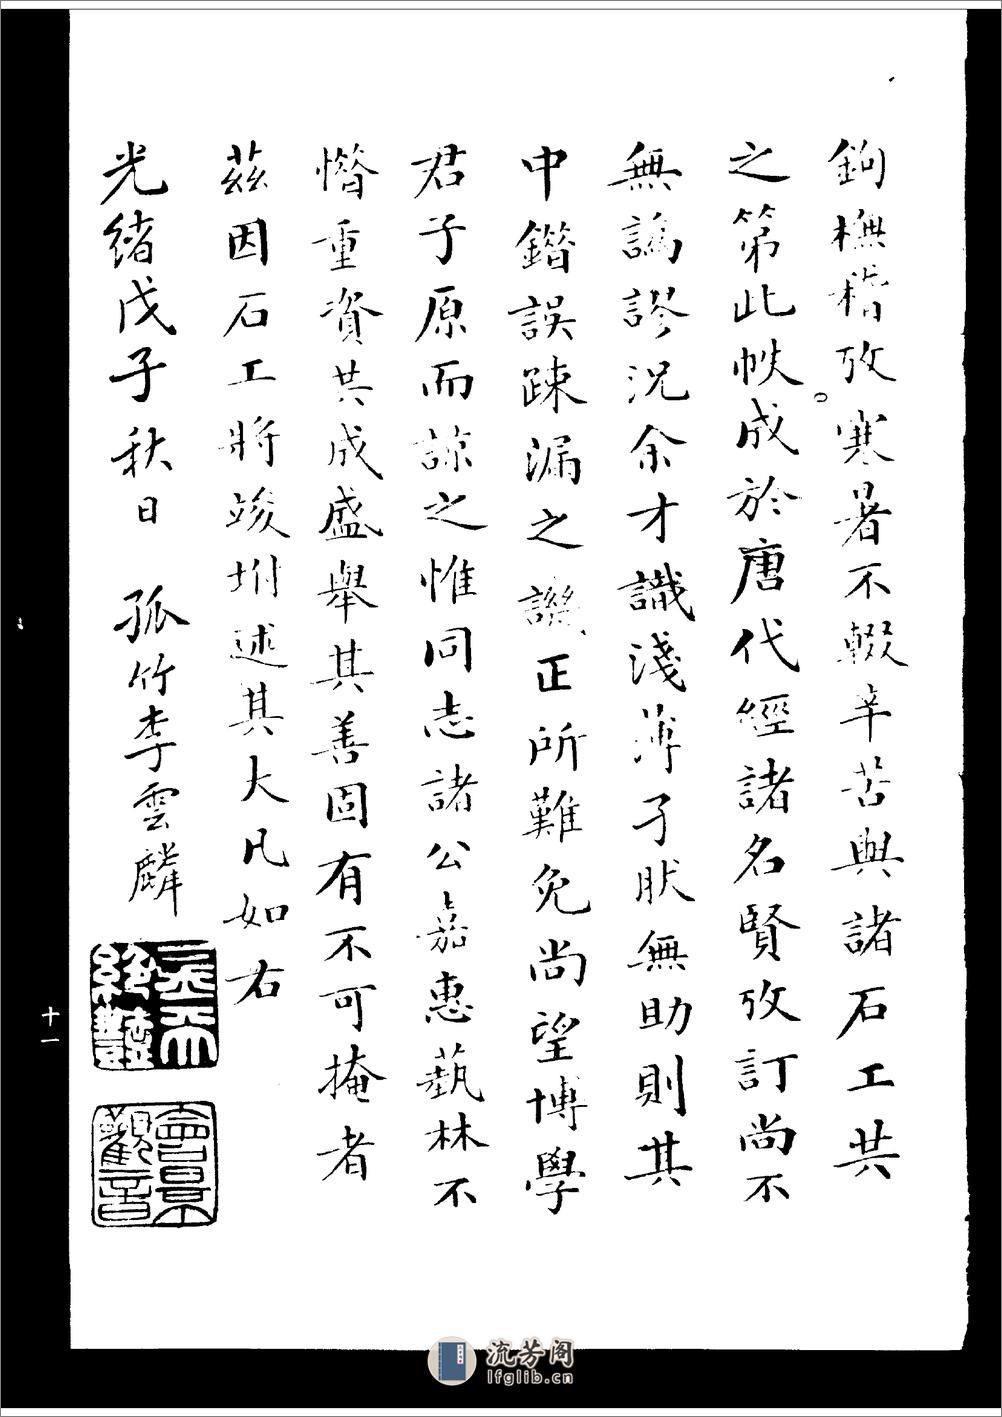 鉤橅稽攷寒暑不輟辛苦與諸石工共
之第此帙成於唐代經諸名賢攷訂尚不
無譌謬況余才識淺薄孑肰無助則其
中鍇誤踈漏之譏正所難免尚望博學
君子原而諒之惟同志諸公嘉惠藝林不
惜重資共成盛舉其善固有不可掩者
茲因石工將竣坿述其大凡如右
光緒戊子秋日 孤竹李雲麟
十一
流芳阁
lfglib.cn